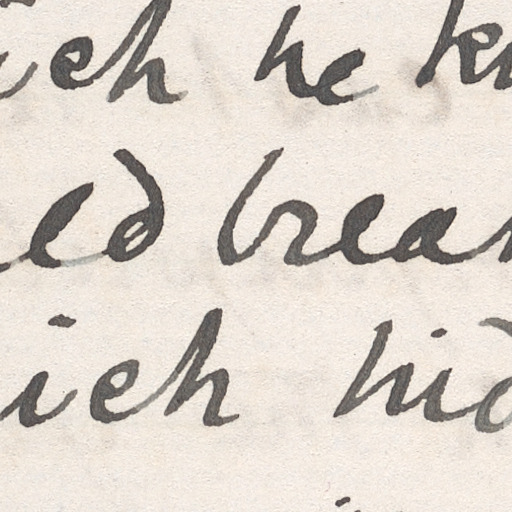 ich he k
ed brea
ich hid